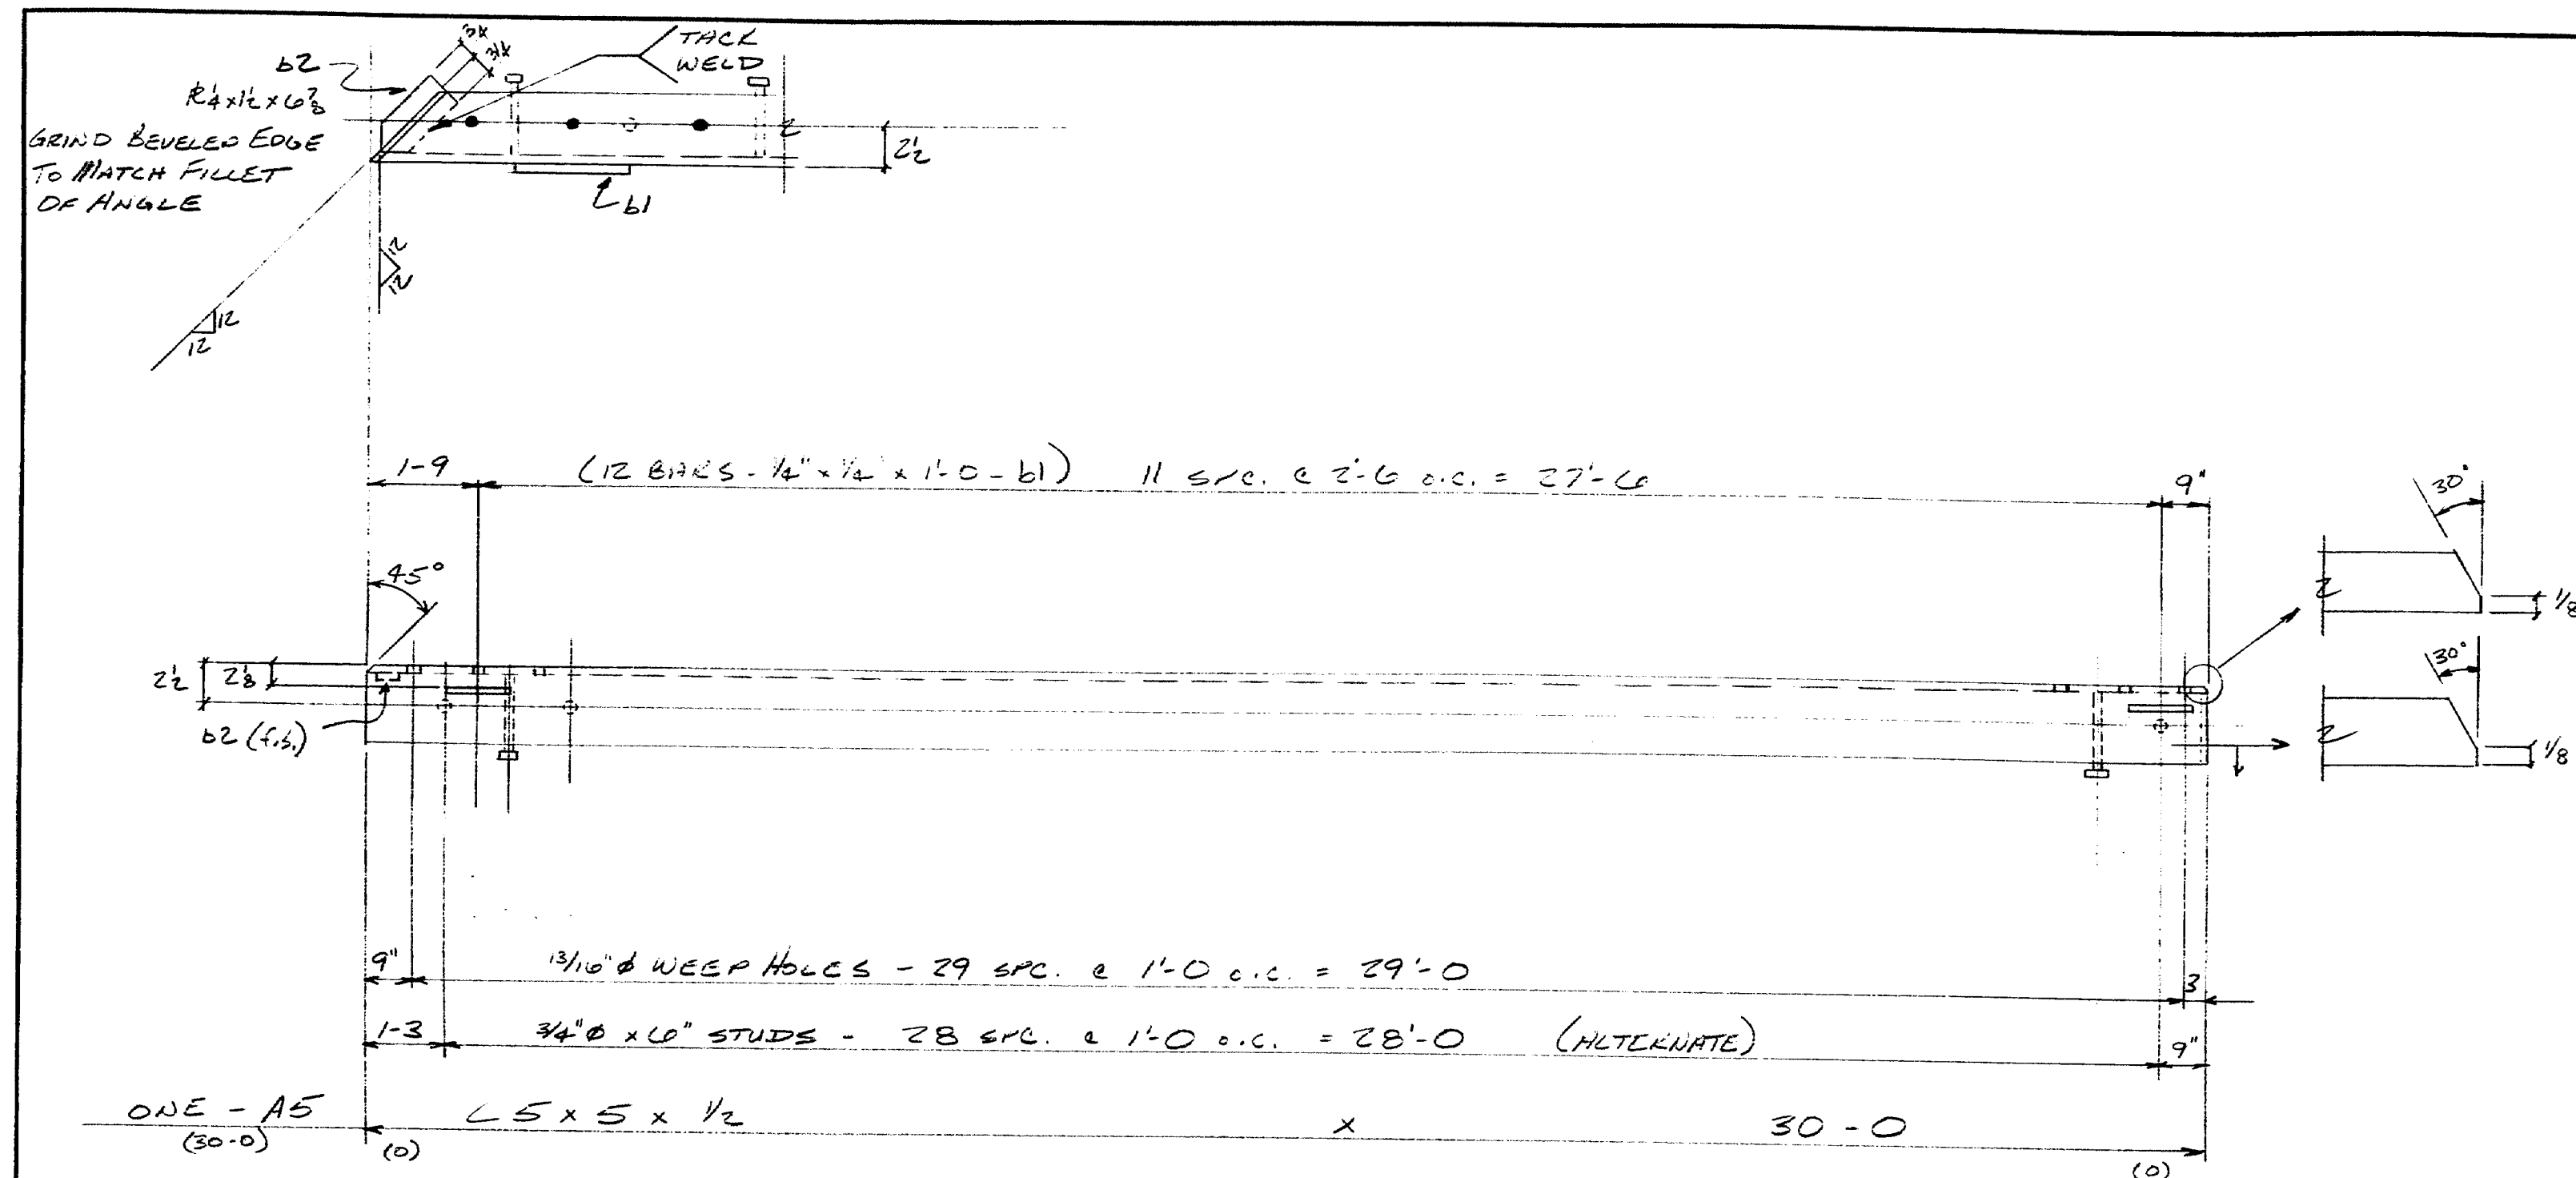 b2
PL 1/4 x 1 1/2 x 6 7/8
GRIND BEVELED EDGE
TO MATCH FILLET
OF ANGLE
3/4
3/4
TACK
WELD
2 1/2
b1
12
12
12
12
1-9
(12 BARS - 1/4" x 1/4 x 1'-0 - b1) 11 SPC. @ 2'-6 o.c. = 27'-6
9"
30°
45°
1/8
2 1/2
2 1/8
30°
b2 (f.s.)
1/8
9"
13/16" ϕ WEEP HOLES - 29 SPC. @ 1'-0 o.c. = 29'-0
3
1-3
3/4" ϕ x 6" STUDS - 28 SPC. @ 1'-0 o.c. = 28'-0 (ALTERNATE)
9"
ONE - A5
(30-0)
L 5 x 5 x 1/2 x 30-0
(0)
(0)